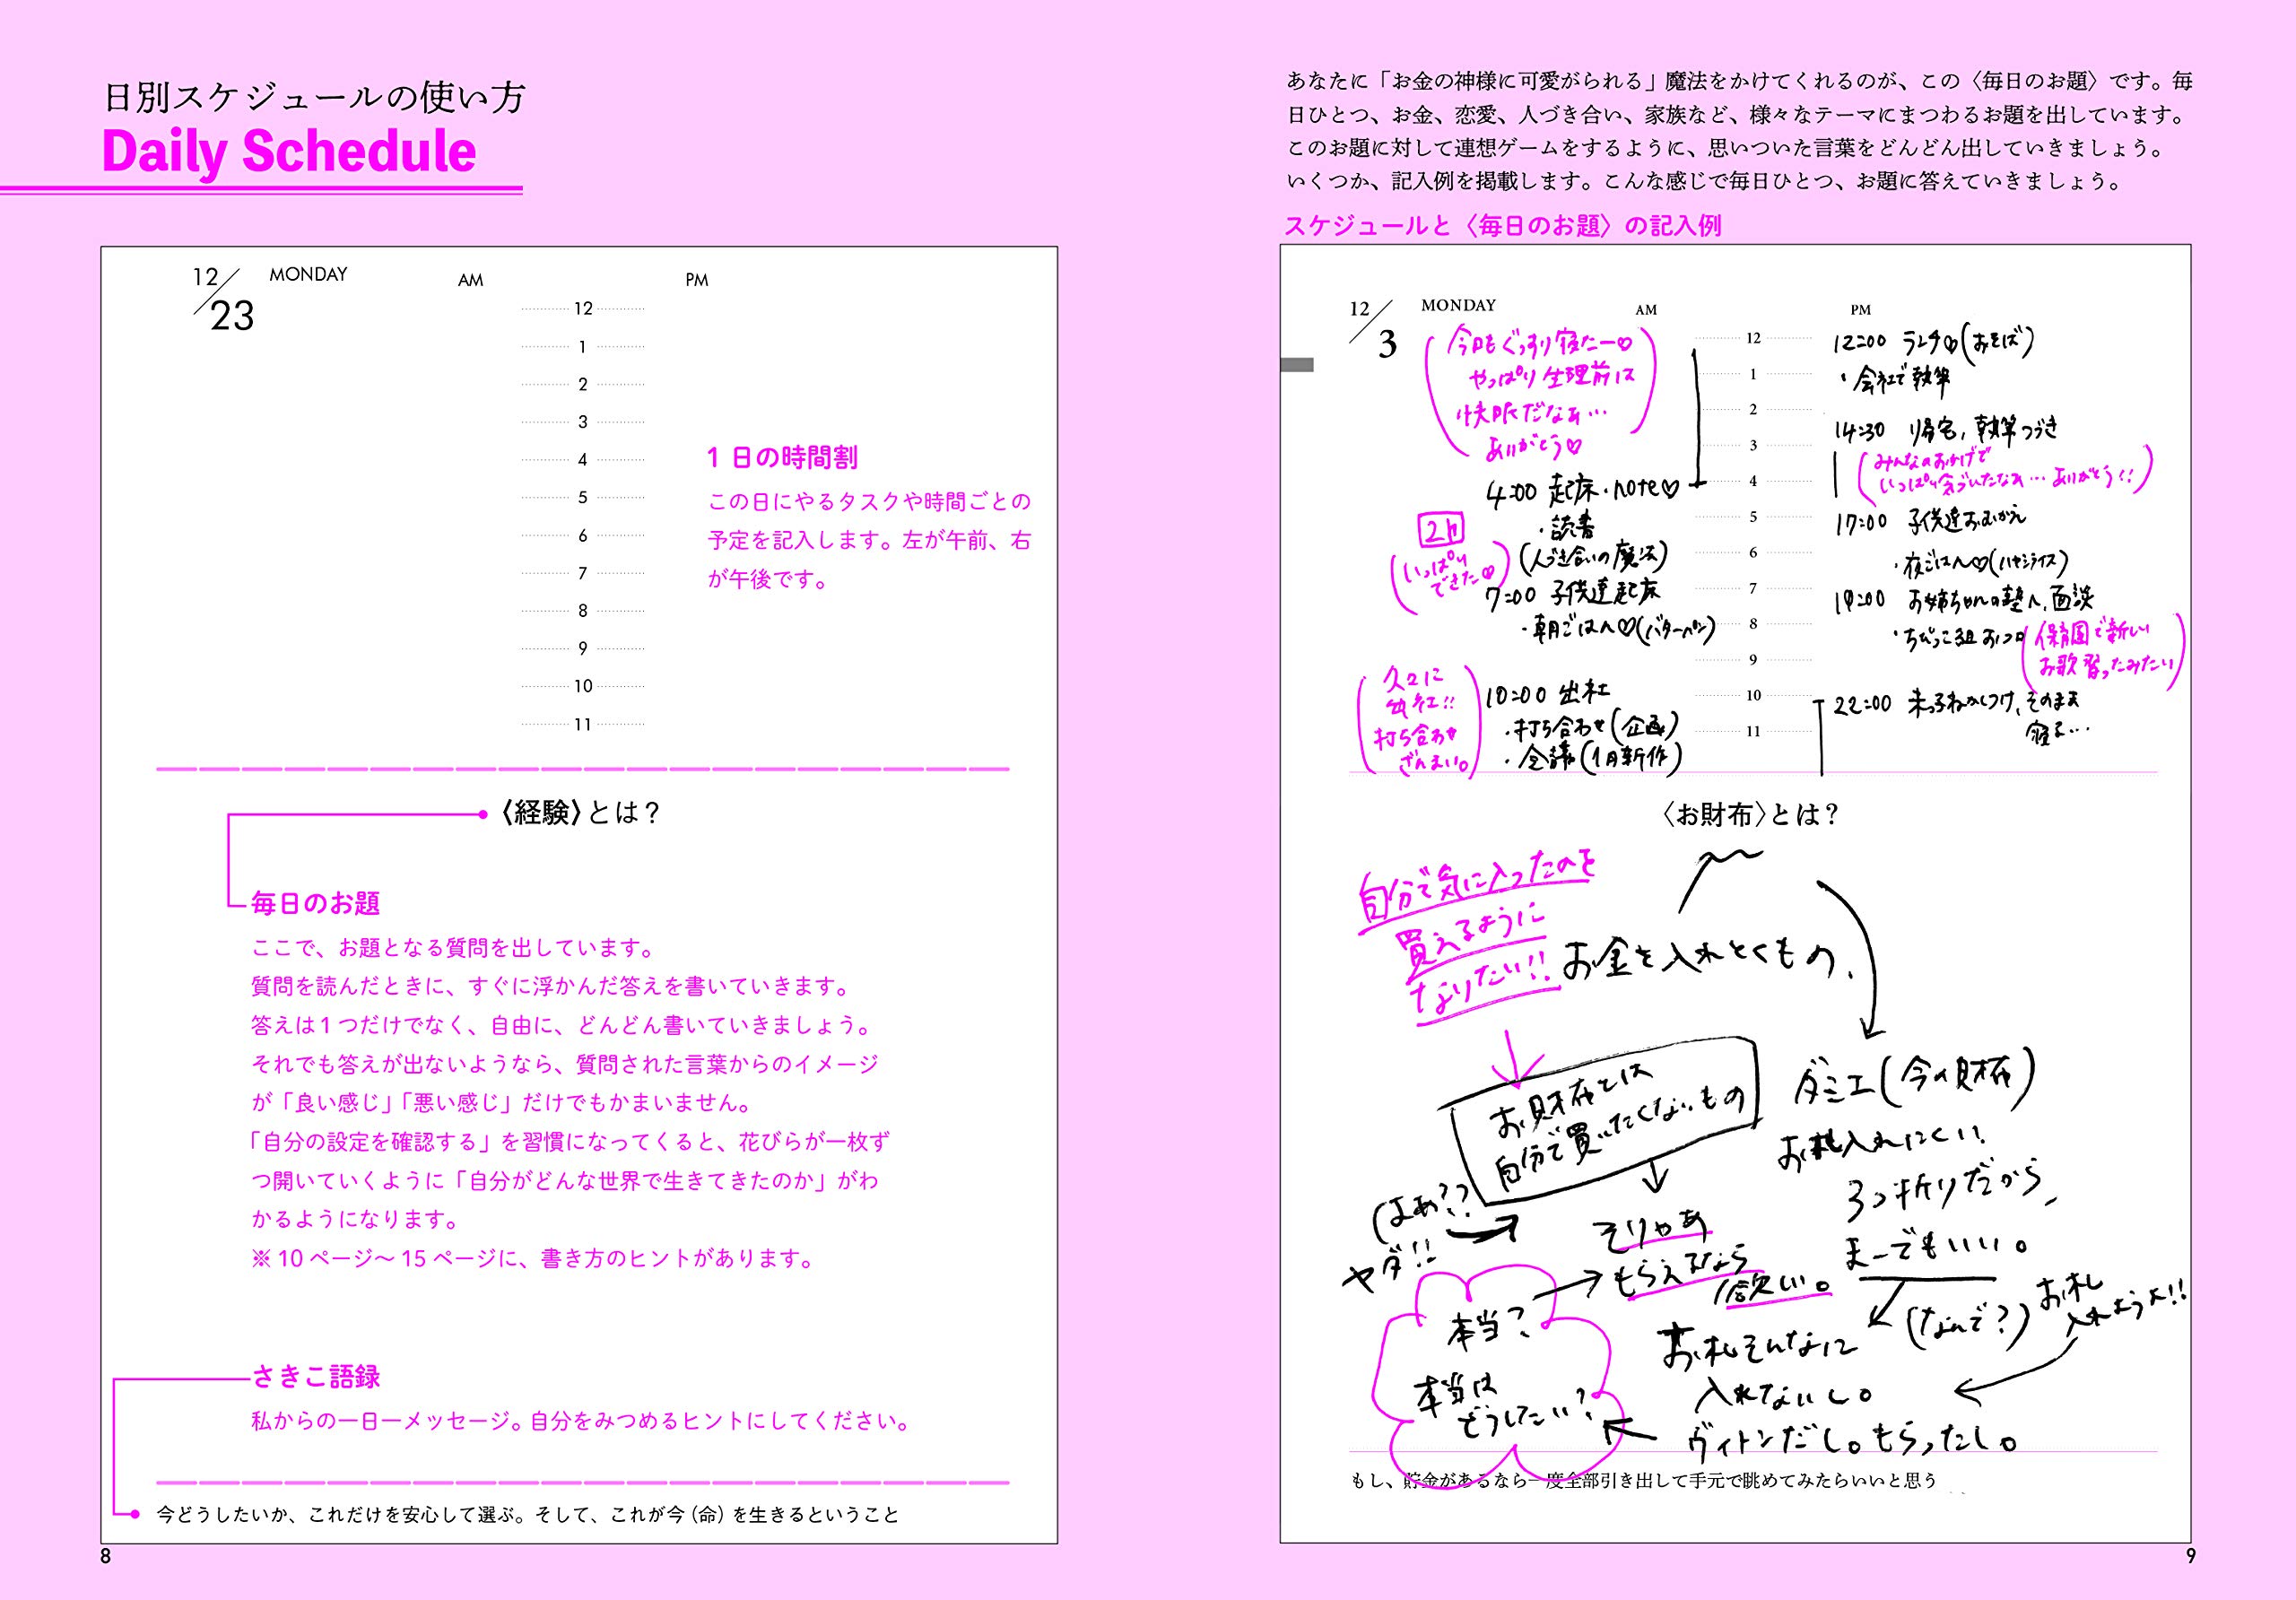 日別スケジュールの使い方
Daily Schedule
12/23 MONDAY AM PM
12
1
2
3
4
5
6
7
8
9
10
11
1日の時間割
この日にやるタスクや時間ごとの
予定を記入します。左が午前、右
が午後です。
〈経験〉とは？
毎日のお題
ここで、お題となる質問を出しています。
質問を読んだときに、すぐに浮かんだ答えを書いていきます。
答えは1つだけでなく、自由に、どんどん書いていきましょう。
それでも答えが出ないようなら、質問された言葉からのイメージ
が「良い感じ」「悪い感じ」だけでもかまいません。
「自分の設定を確認する」を習慣になってくると、花びらが一枚ず
つ開いていくように「自分がどんな世界で生きてきたのか」がわ
かるようになります。
※10ページ〜15ページに、書き方のヒントがあります。
さきこ語録
私からの一日一メッセージ。自分をみつめるヒントにしてください。
今どうしたいか、これだけを安心して選ぶ。そして、これが今（命）を生きるということ
8
あなたに「お金の神様に可愛がられる」魔法をかけてくれるのが、この〈毎日のお題〉です。毎
日ひとつ、お金、恋愛、人づき合い、家族など、様々なテーマにまつわるお題を出しています。
このお題に対して連想ゲームをするように、思いついた言葉をどんどん出していきましょう。
いくつか、記入例を掲載します。こんな感じで毎日ひとつ、お題に答えていきましょう。
スケジュールと〈毎日のお題〉の記入例
12/3 MONDAY AM PM
12
1
2
3
4
5
6
7
8
9
10
11
(今日もぐっすり寝たー♡
やっぱり生理前は
快眠だなぁ…
ありがとう♡)
4:00 起床・note♡
・読書
(人づき合いの魔法)
2h
(いっぱい
できた♡)
7:00 子供達起床
・朝ごはん♡(バターパン)
(久々に
出社!!
打ち合わせ
ざんまい。)
10:00 出社
・打ち合わせ(企画)
・会議(1月新作)
12:00 ランチ♡(おそば)
・会社で執筆
14:30 帰宅、執筆つづき
(みんなのおかげで
いっぱい気づいたなぁ…ありがとう!!)
17:00 子供達おむかえ
・夜ごはん♡(ハヤシライス)
19:00 お姉ちゃんの塾へ、面談
・ちびっこ組おフロ
(保育園で新しい
お歌習ったみたい)
22:00 末っ子ねかしつけ、そのまま
寝る…
〈お財布〉とは？
自分で気に入ったのを
買えるように
なりたい!!
お金を入れとくもの、
お財布とは
自分で買いたくないもの
ダミエ(今の財布)
お札入れにくい。
3つ折りだから、
まーでもいい。
(なんで?)
お札
入れようよ!!
(はあ??
ヤダ!!
そりゃあ
もらえるなら
欲しい。
本当?
本当は
どうしたい?
お札そんなに
入れてないし。
ヴィトンだし。もらったし。
もし、貯金があるなら一度全部引き出して手元で眺めてみたらいいと思う
9